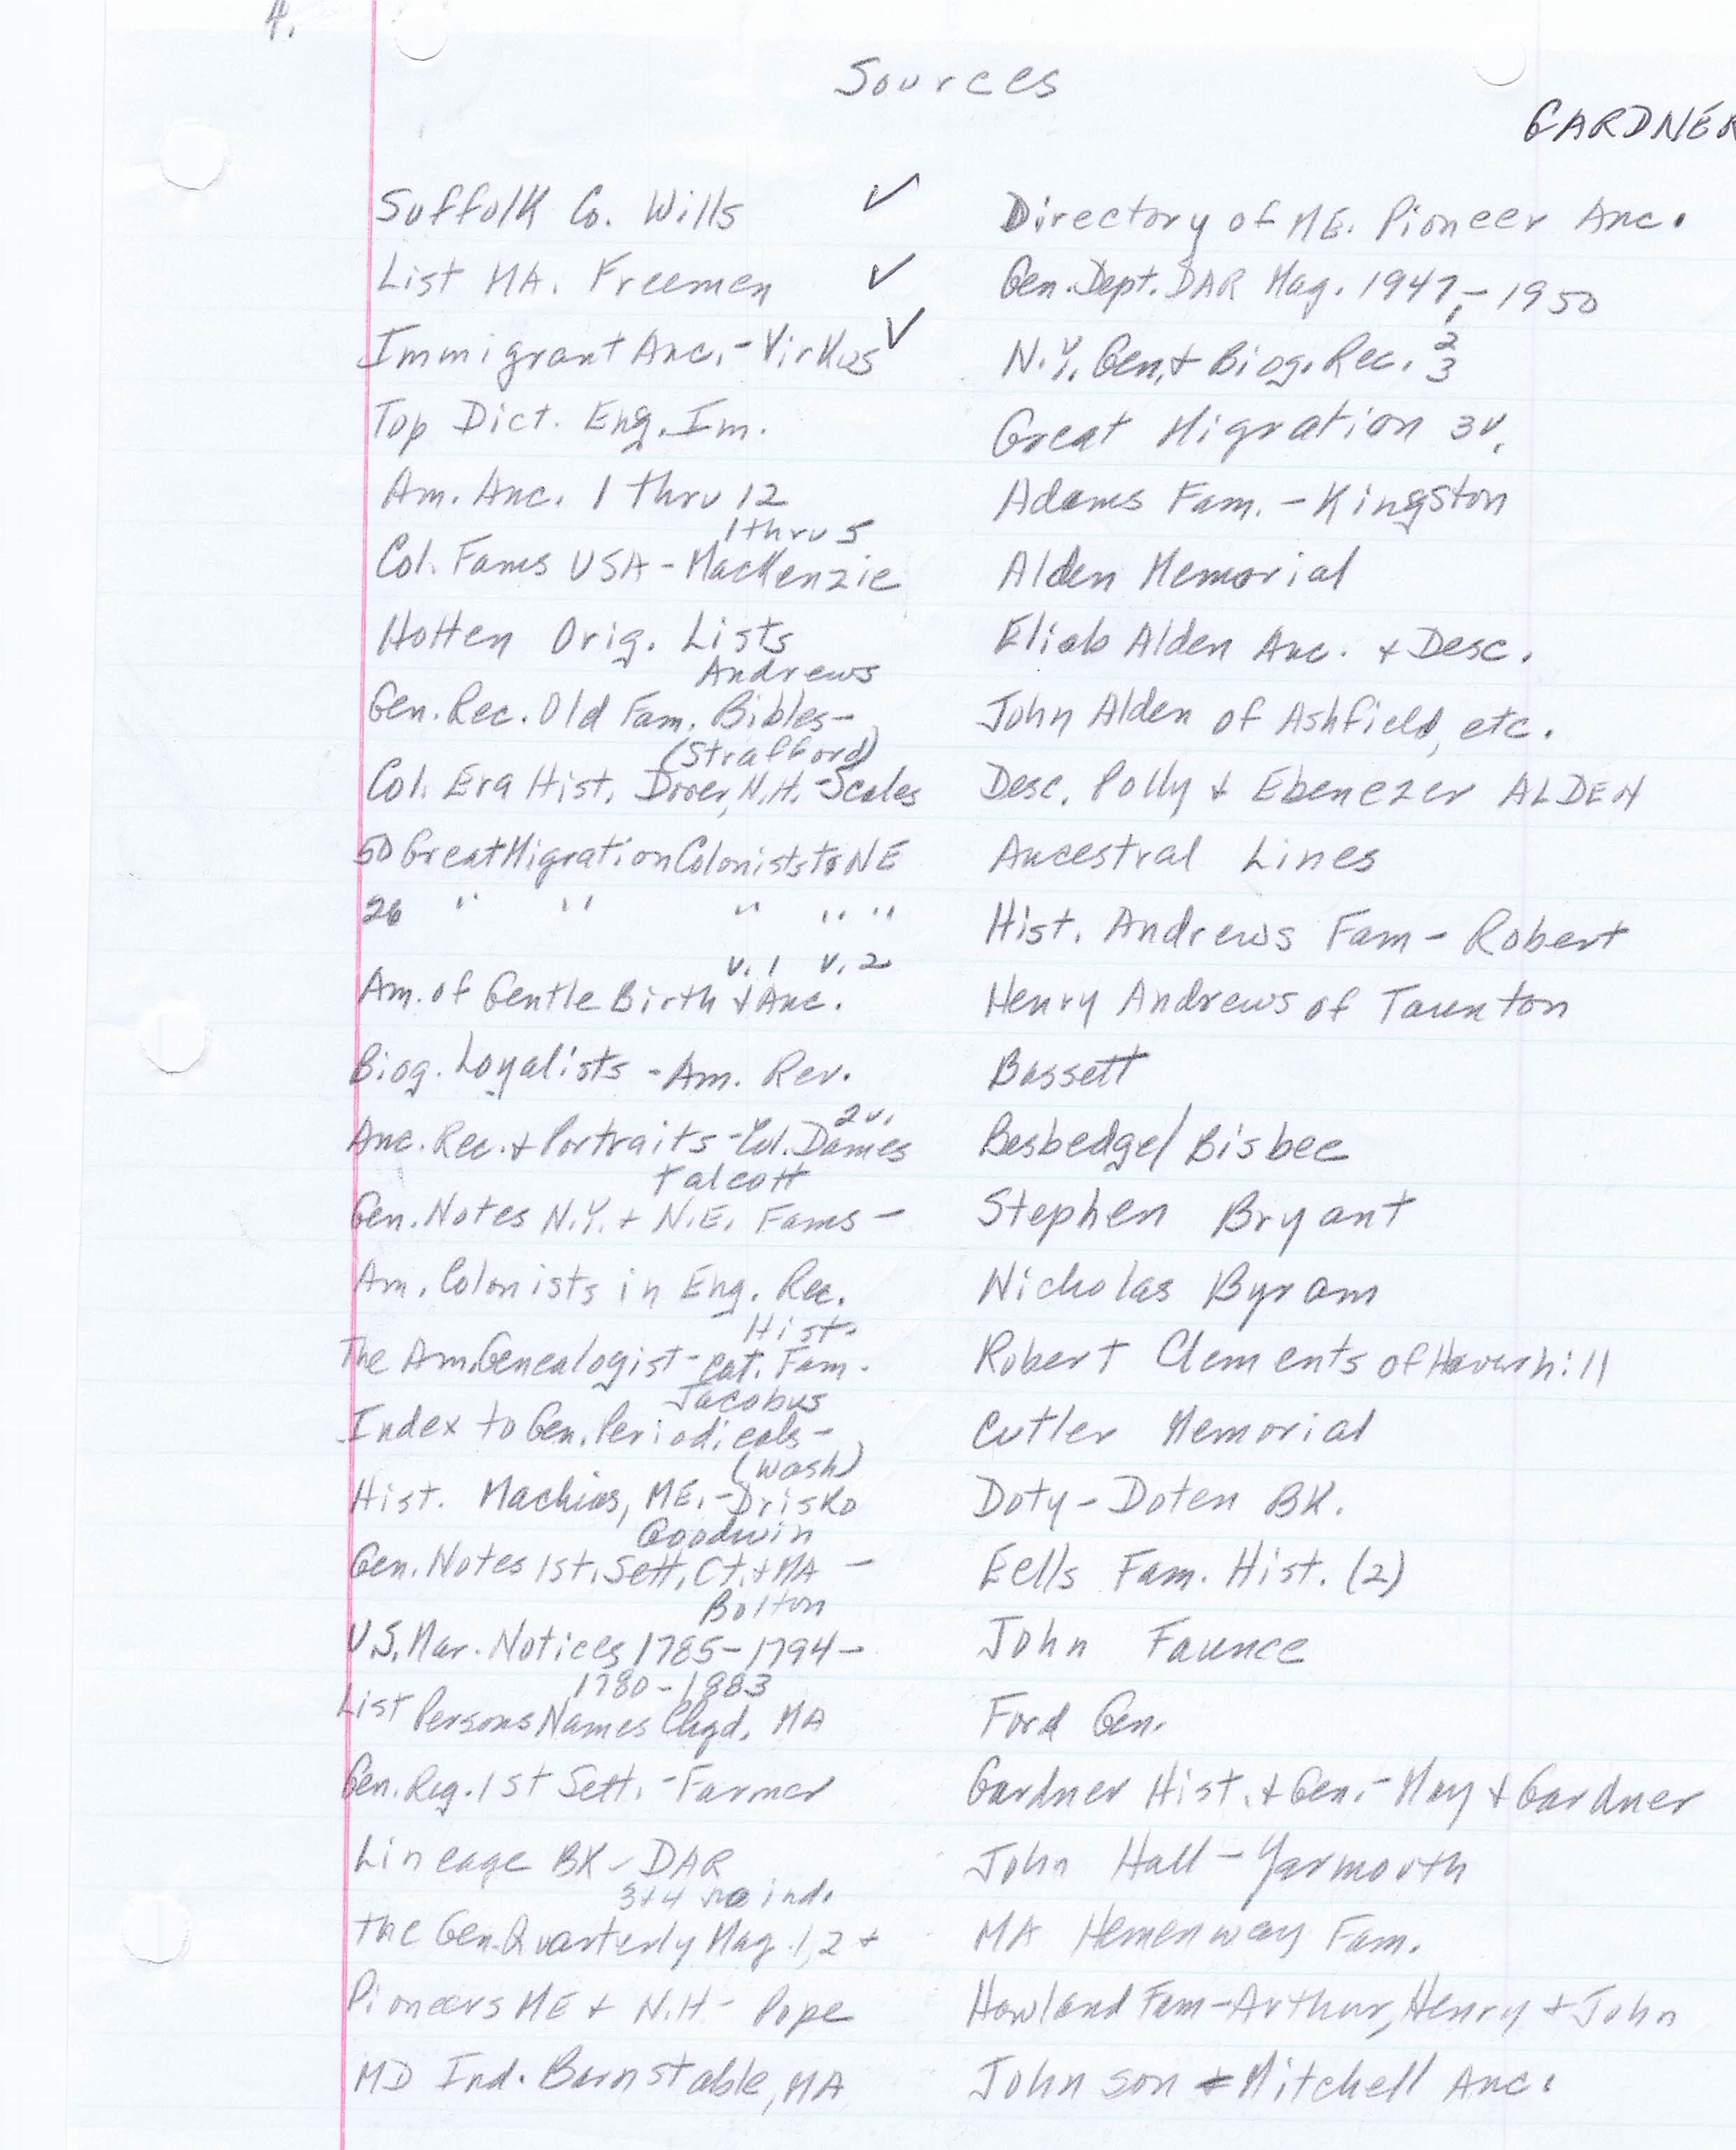 4.
Sources
GARDNER
Suffolk Co. Wills ✓
List MA. Freemen ✓
Immigrant Anc. - Virkus ✓
Top Dict. Eng. Im.
Am. Anc. 1 thru 12
1 thru 5
Col. Fams USA - MacKenzie
Hotten Orig. Lists
Andrews
Gen. Rec. Old Fam. Bibles -
(Strafford)
Col. Era Hist. Dover, N.H. - Scales
50 Great Migration Colonists to NE
26 " " " " "
v. 1 v. 2
Am. of Gentle Birth + Anc.
Biog. Loyalists - Am. Rev.
2 v.
Anc. Rec. + Portraits - Col. Dames
Talcott
Gen. Notes N.Y. + N.E. Fams -
Am. Colonists in Eng. Rec.
Hist.
The Am. Genealogist - Cat. Fam.
Jacobus
Index to Gen. Periodicals -
(Wash)
Hist. Machias, ME. - Drisko
Goodwin
Gen. Notes 1st. Sett. Ct. + MA -
Bolton
U.S. Mar. Notices 1785 - 1794 -
1780 - 1883
List Persons Names Chgd. MA
Gen. Reg. 1st Sett. - Farmer
Lineage BK - DAR
3 + 4 no ind.
The Gen. Quarterly Mag. 1, 2 +
Pioneers ME + N.H - Pope
MD Ind. Barnstable, MA
Directory of ME. Pioneer Anc.
Gen. Dept. DAR Mag. 1947 - 1950
1,
2
N.Y. Gen. + Biog. Rec. 3
Great Migration 3 v.
Adams Fam. - Kingston
Alden Memorial
Eliab Alden Anc. + Desc.
John Alden of Ashfield, etc.
Desc. Polly + Ebenezer ALDEN
Ancestral Lines
Hist. Andrews Fam - Robert
Henry Andrews of Taunton
Bassett
Besbedge / Bisbee
Stephen Bryant
Nicholas Byram
Robert Clements of Haverhill
Cutler Memorial
Doty - Doten BK.
Eells Fam. Hist. (2)
John Faunce
Ford Gen.
Gardner Hist. + Gen. - May + Gardner
John Hall - Yarmouth
MA Hemenway Fam.
Howland Fam - Arthur, Henry + John
Johnson + Mitchell Anc.